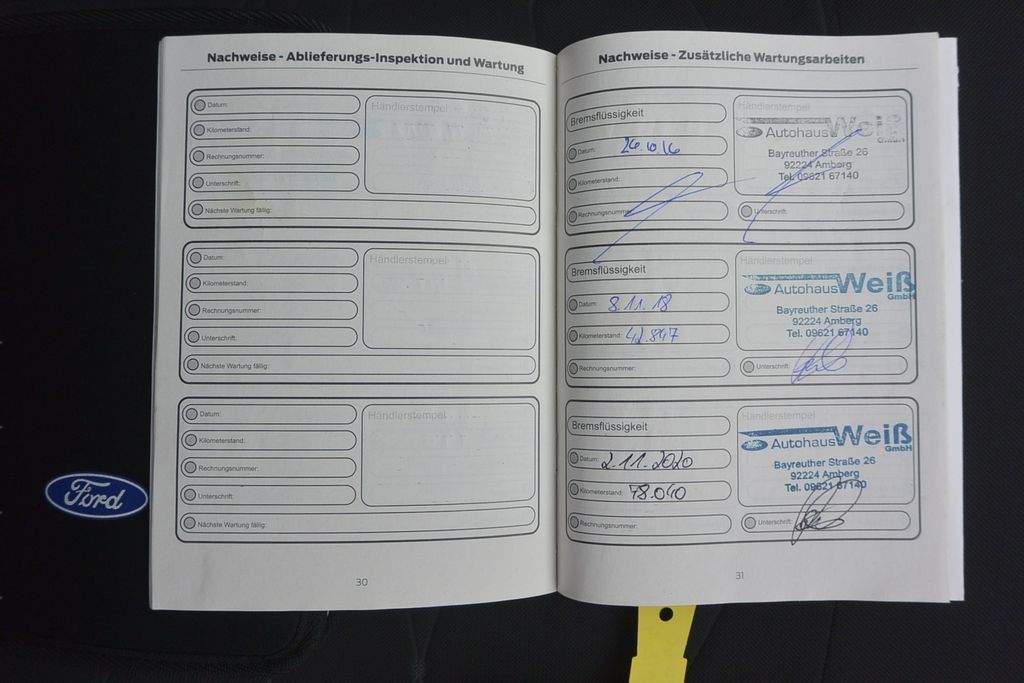 Nachweise - Ablieferungs-Inspektion und Wartung
Datum:
Händlerstempel
Kilometerstand:
Rechnungsnummer:
Unterschrift:
Nächste Wartung fällig:
Datum:
Händlerstempel
Kilometerstand:
Rechnungsnummer:
Unterschrift:
Nächste Wartung fällig:
Datum:
Händlerstempel
Kilometerstand:
Rechnungsnummer:
Unterschrift:
Nächste Wartung fällig:
30
Nachweise - Zusätzliche Wartungsarbeiten
Bremsflüssigkeit
Händlerstempel
Ford Autohaus Weiß GmbH
Bayreuther Straße 26
92224 Amberg
Tel. 09621 67140
Datum:
Kilometerstand:
Rechnungsnummer:
Unterschrift:
Bremsflüssigkeit
Händlerstempel
Ford Autohaus Weiß GmbH
Bayreuther Straße 26
92224 Amberg
Tel. 09621 67140
Datum: 8.11.18
Kilometerstand: 42.847
Rechnungsnummer:
Unterschrift:
Bremsflüssigkeit
Händlerstempel
Ford Autohaus Weiß GmbH
Bayreuther Straße 26
92224 Amberg
Tel. 09621 67140
Datum: 2.11.2020
Kilometerstand: 78.040
Rechnungsnummer:
Unterschrift:
31
Ford